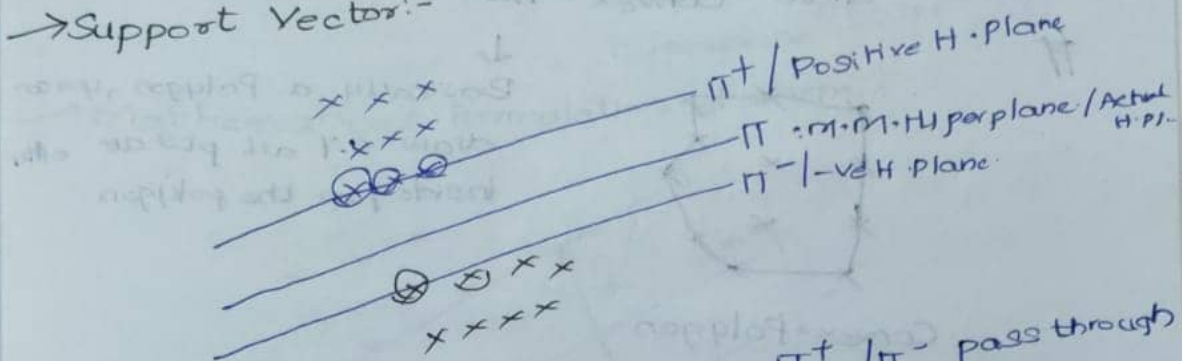 →Support Vector:-
π+ / Positive H.Plane
π :m.m.Hyperplane/Actual H.Pl.
π- / -ve H.Plane.
π+ / π- pass through